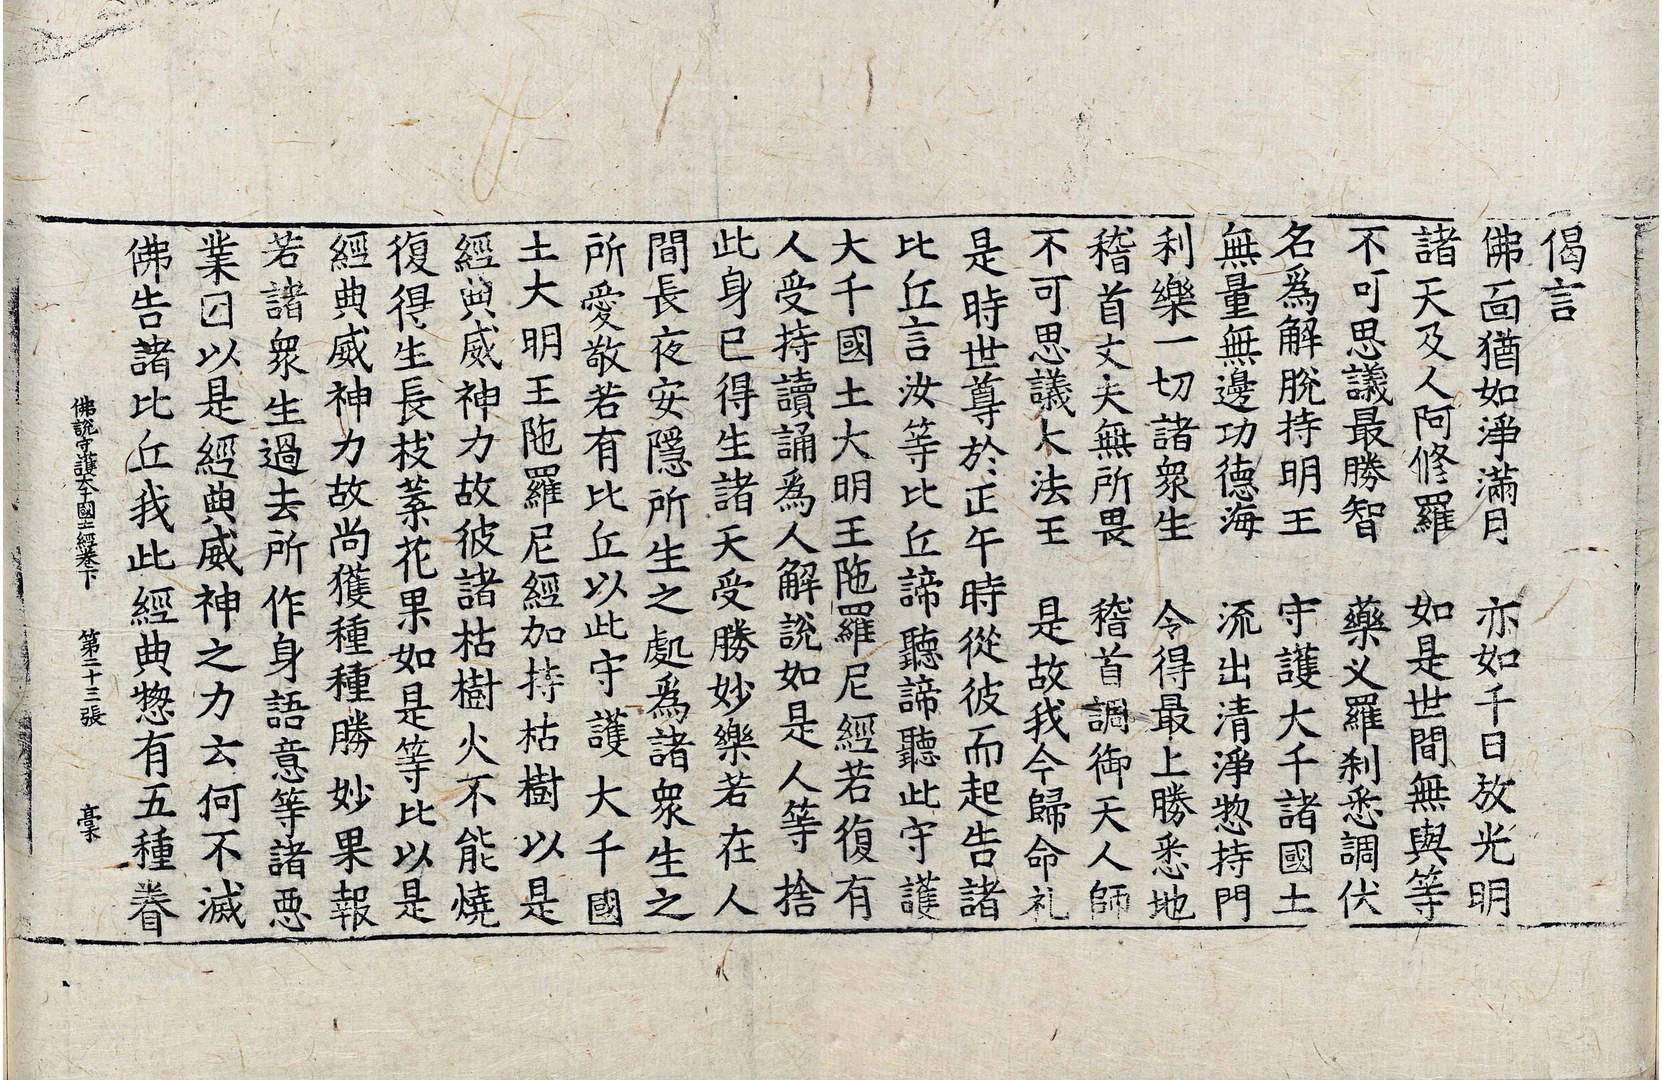 偈言
佛面猶如淨滿月　亦如千日放光明
諸天及人阿修羅　如是世間無與等
不可思議最勝智　藥义羅刹悉調伏
名爲解脫持明王　守護大千諸國土
無量無邊功德海　流出清淨惣持門
利樂一切諸衆生　令得最上勝悉地
稽首丈夫無所畏　稽首調御天人師
不可思議大法王　是故我今歸命礼
是時世尊於正午時從彼而起告諸
比丘言汝等比丘諦聽諦聽此守護
大千國土大明王陁羅尼經若復有
人受持讀誦爲人解說如是人等捨
此身已得生諸天受勝妙樂若在人
間長夜安隱所生之處爲諸衆生之
所愛敬若有比丘以此守護大千國
土大明王陁羅尼經加持枯樹以是
經典威神力故彼諸枯樹火不能燒
復得生長枝葉花果如是等比以是
經典威神力故尚獲種種勝妙果報
若諸衆生過去所作身語意等諸惡
業因以是經典威神之力云何不滅
佛告諸比丘我此經典惣有五種眷
佛說守護大千國土經卷下　第二十三張　槀